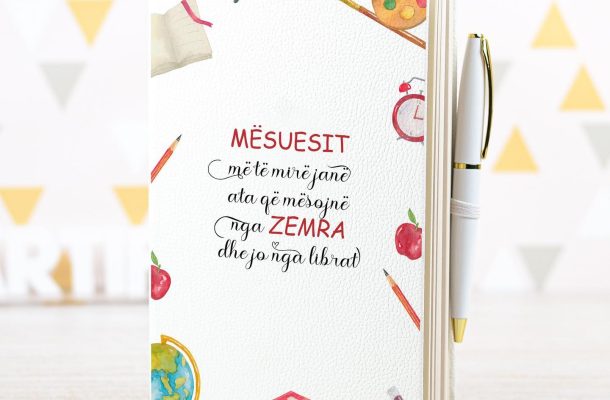 MËSUESIT
më të mirë janë
ata që mësojnë
nga ZEMRA
dhe jo nga librat